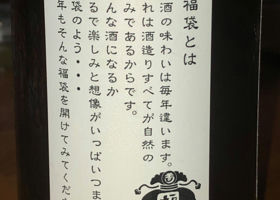 福袋とは
酒の味わいは毎年違います。
れは酒造りすべてが自然の
みであるからです。
んな酒になるか
るで楽しみと想像がいっぱいつま
袋のよう・・・
年もそんな福袋を開けてみてくださ